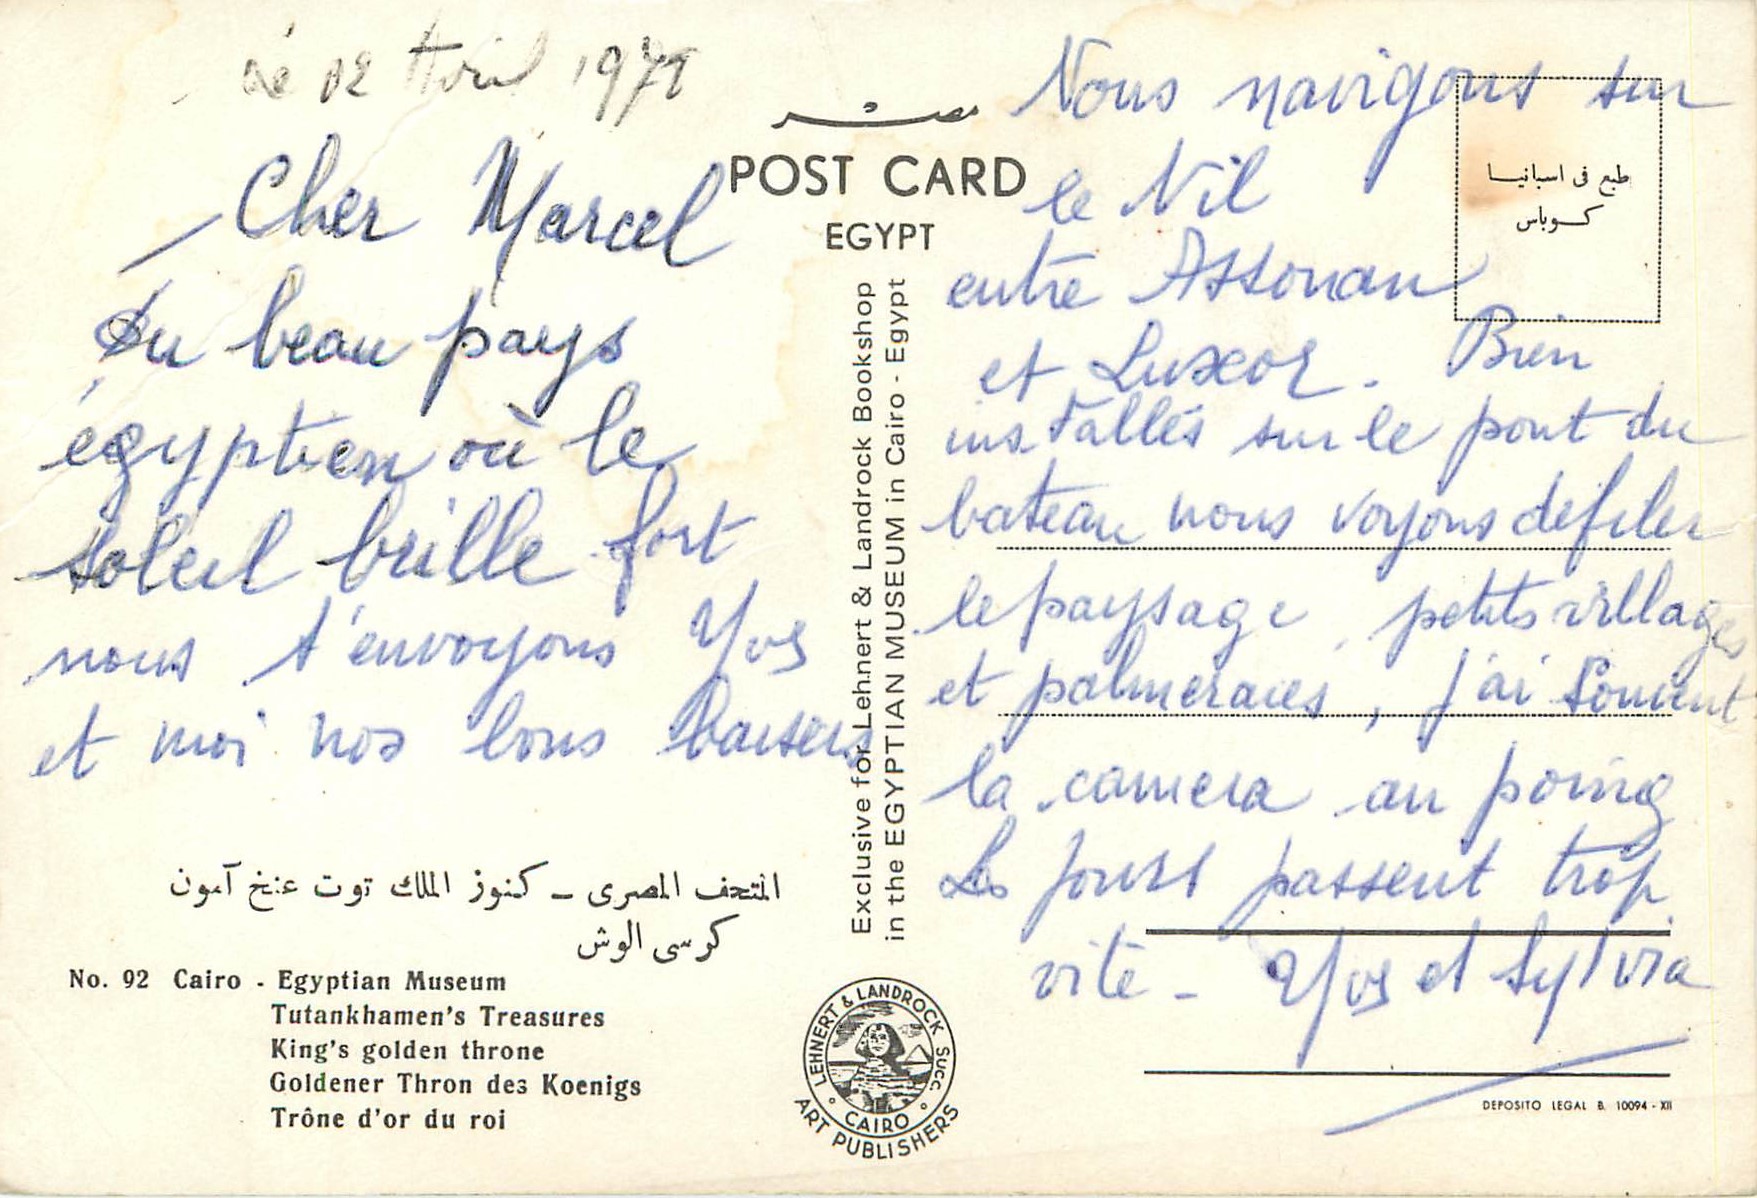 Le 12 Avril 1979
Cher Marcel
Du beau pays
égyptien où le
soleil brille fort
nous t'envoyons Yves
et moi nos bons baisers
المتحف المصرى - كنوز الملك توت عنخ آمون
كرسى الوش
No. 92 Cairo - Egyptian Museum
Tutankhamen's Treasures
King's golden throne
Goldener Thron des Koenigs
Trône d'or du roi
مصر
POST CARD
EGYPT
Exclusive for Lehnert & Landrock Bookshop
in the EGYPTIAN MUSEUM in Cairo - Egypt
LEHNERT & LANDROCK SUCC.
CAIRO
ART PUBLISHERS
طبع فى اسبانيا
كوباس
Nous navigons sur
le Nil
entre Assouan
et Luxor. Bien
installés sur le pont du
bateau nous voyons defiler
le paysage, petits villages
et palmeraies, j'ai souvent
la camera au poing
Les jours passent trop
vite - Yves et Sylvia
DEPOSITO LEGAL B. 10094 - XII